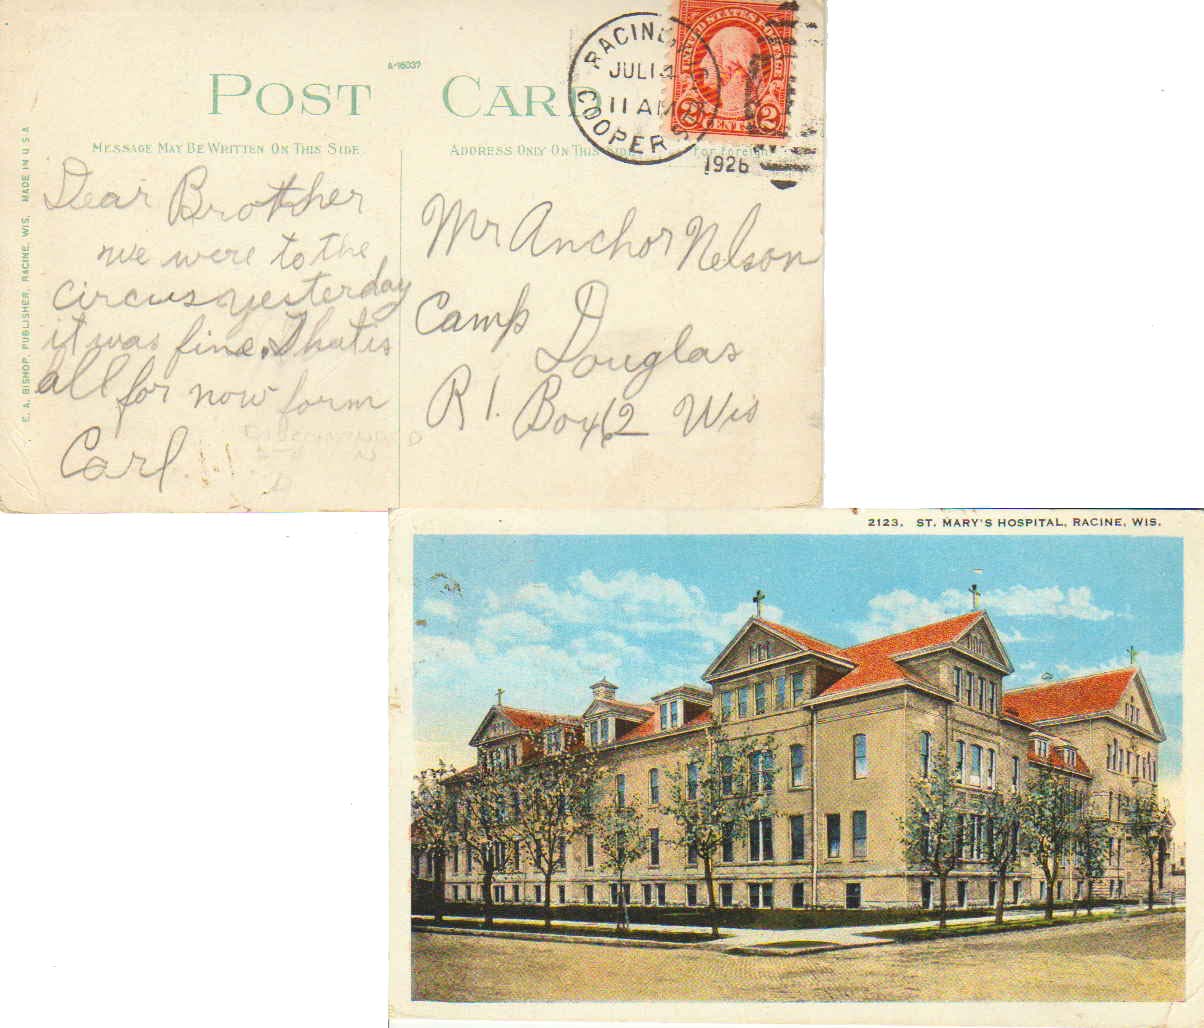 A-16037
POST CARD
MESSAGE MAY BE WRITTEN ON THIS SIDE
ADDRESS ONLY ON THIS SIDE
For foreign
RACINE,
JUL 14
11 AM
COOPER ST
1926
UNITED STATES POSTAGE
2 CENTS 2
E. A. BISHOP, PUBLISHER, RACINE, WIS. MADE IN U.S.A
Dear Brother
we were to the
circus yesterday
it was fine. That is
all for now form
Carl.
Mr Anchor Nelson
Camp
Douglas
R 1. Box 2 Wis
2123. ST. MARY'S HOSPITAL, RACINE, WIS.